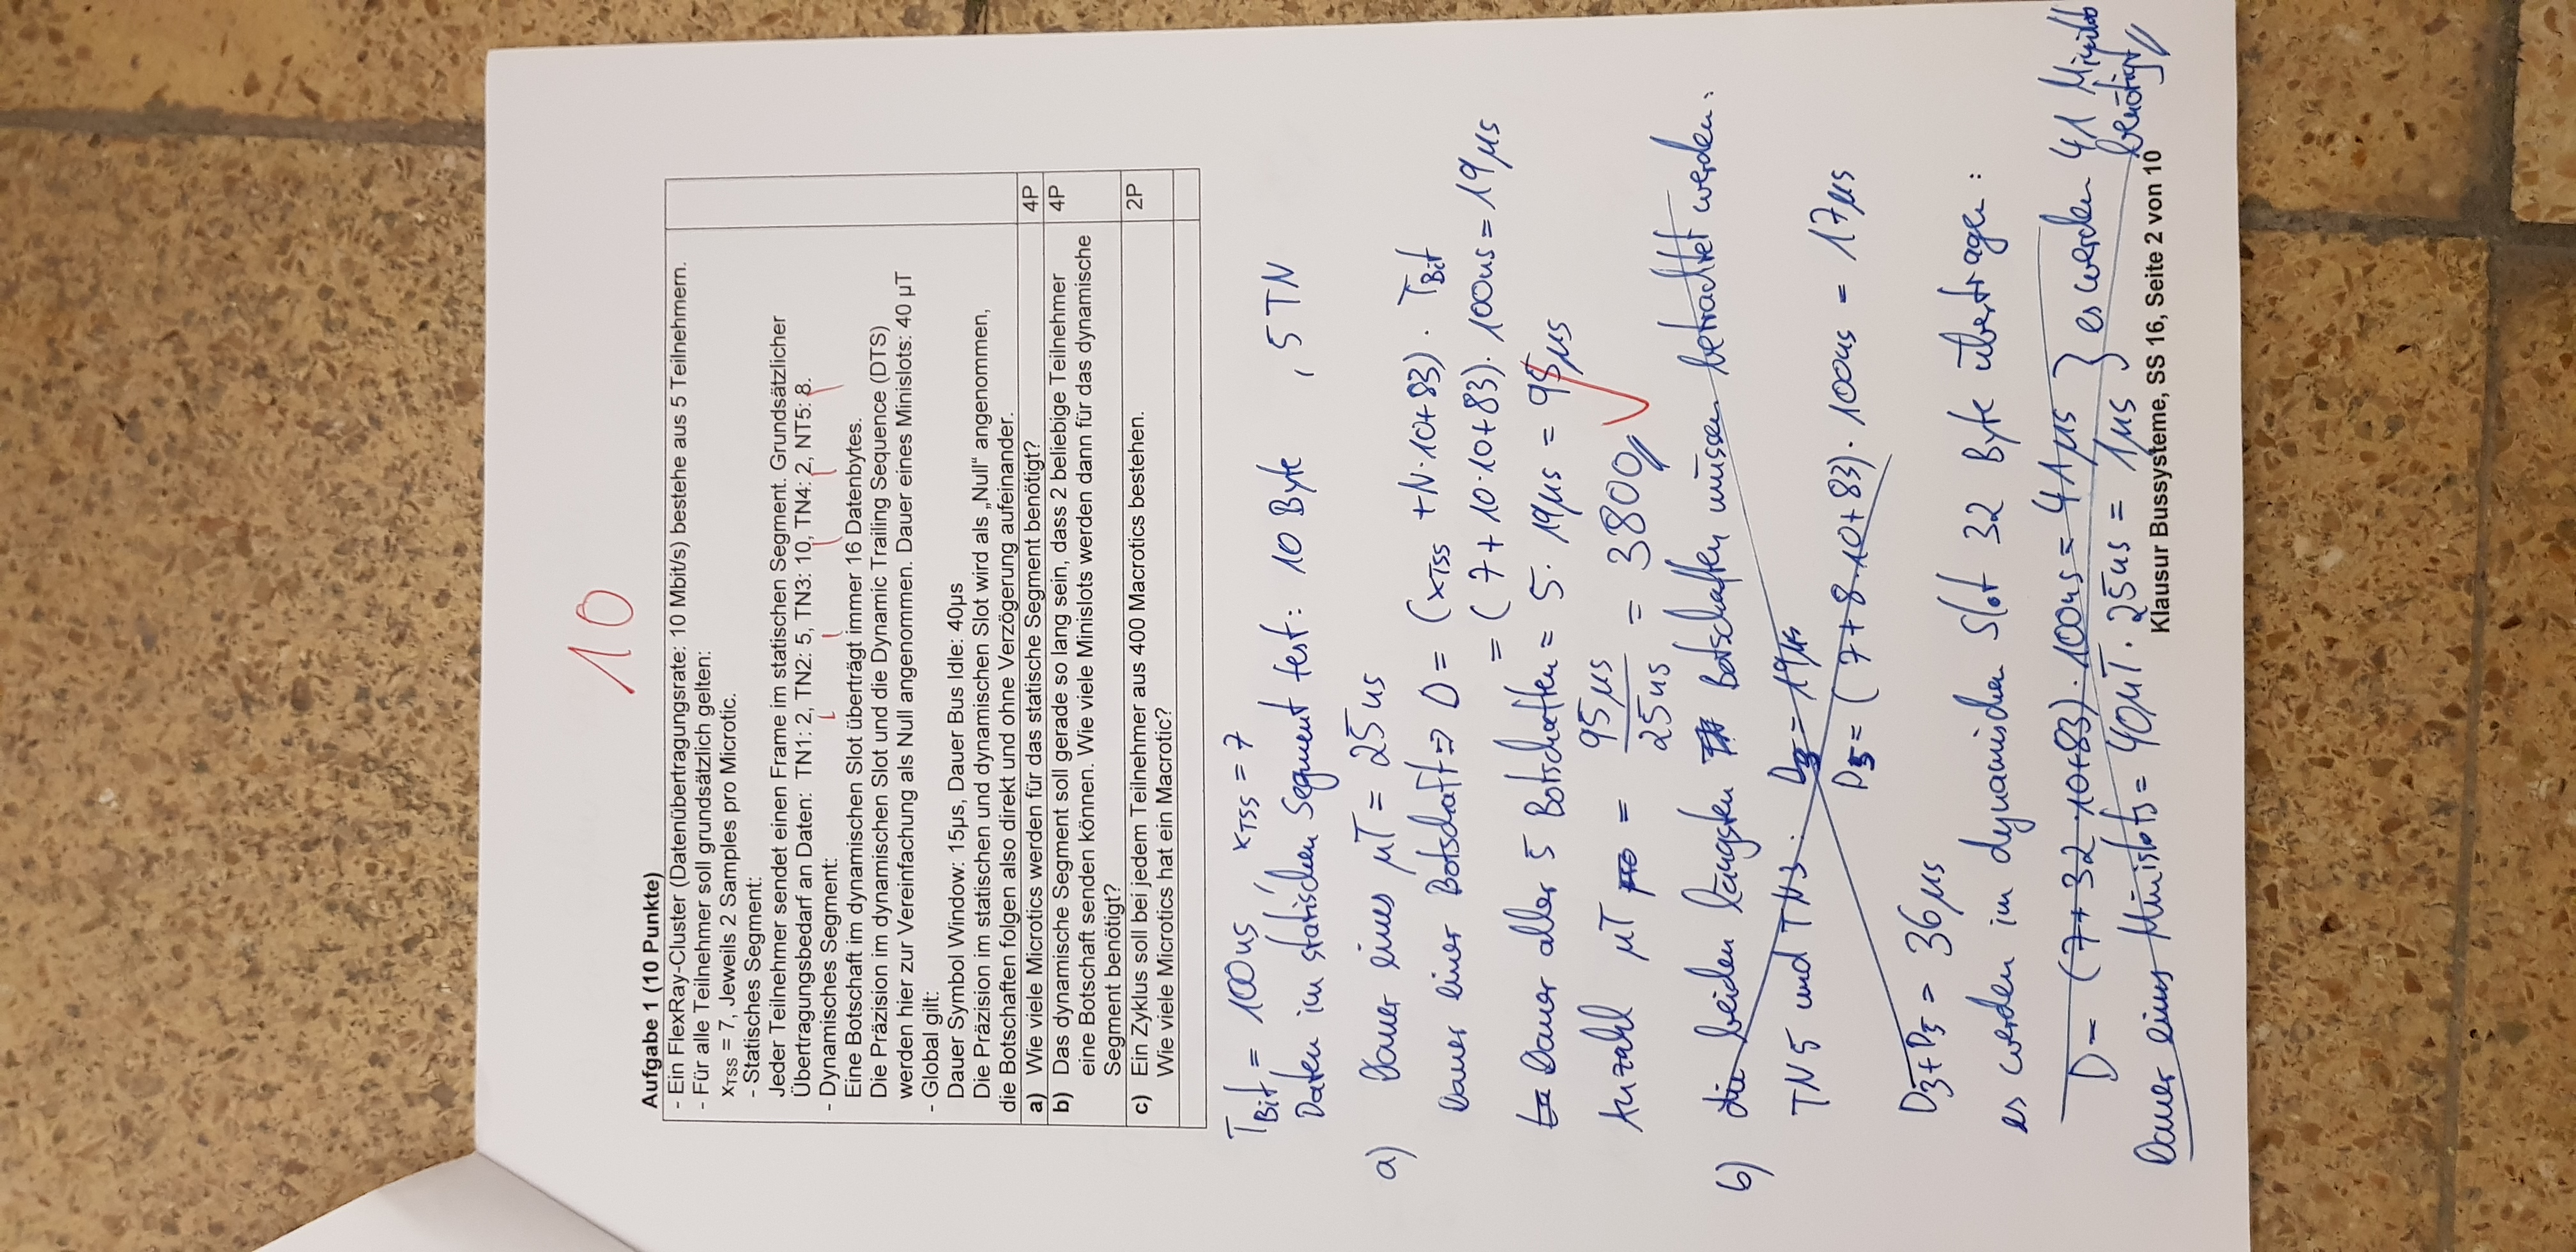 10
Aufgabe 1 (10 Punkte)
- Ein FlexRay-Cluster (Datenübertragungsrate: 10 Mbit/s) bestehe aus 5 Teilnehmern.
- Für alle Teilnehmer soll grundsätzlich gelten:
xTSS = 7, Jeweils 2 Samples pro Microtic.
- Statisches Segment:
Jeder Teilnehmer sendet einen Frame im statischen Segment. Grundsätzlicher
Übertragungsbedarf an Daten: TN1: 2, TN2: 5, TN3: 10, TN4: 2, NT5: 8.
- Dynamisches Segment:
Eine Botschaft im dynamischen Slot überträgt immer 16 Datenbytes.
Die Präzision im dynamischen Slot und die Dynamic Trailing Sequence (DTS)
werden hier zur Vereinfachung als Null angenommen. Dauer eines Minislots: 40 µT
- Global gilt:
Dauer Symbol Window: 15µs, Dauer Bus Idle: 40µs
Die Präzision im statischen und dynamischen Slot wird als „Null“ angenommen,
die Botschaften folgen also direkt und ohne Verzögerung aufeinander.
a) Wie viele Microtics werden für das statische Segment benötigt? 4P
b) Das dynamische Segment soll gerade so lang sein, dass 2 beliebige Teilnehmer 4P
eine Botschaft senden können. Wie viele Minislots werden dann für das dynamische
Segment benötigt?
c) Ein Zyklus soll bei jedem Teilnehmer aus 400 Macrotics bestehen. 2P
Wie viele Microtics hat ein Macrotic?
TBit = 100ns, xTSS = 7
Daten im statischen Segment fest: 10 Byte , 5 TN
a) Dauer eines µT = 25ns
Dauer einer Botschaft => D = (xTSS + N·10+83) · TBit
= (7+10·10+83) · 100ns = 19µs
Dauer aller 5 Botschaften = 5 · 19µs = 95µs
Anzahl µT = 95µs / 25ns = 3800
b) die beiden längsten Botschaften müssen betrachtet werden:
TN5 und TN3: D3 = 19µs
D5 = (7+8·10+83) · 100ns = 17µs
D3+D5 = 36µs
es werden im dynamischen Slot 32 Byte übertragen:
D = (7+32·10+83) · 100ns = 41µs } es werden 41 Minislots
Dauer eines Minislots = 40µT · 25ns = 1µs benötigt
Klausur Bussysteme, SS 16, Seite 2 von 10